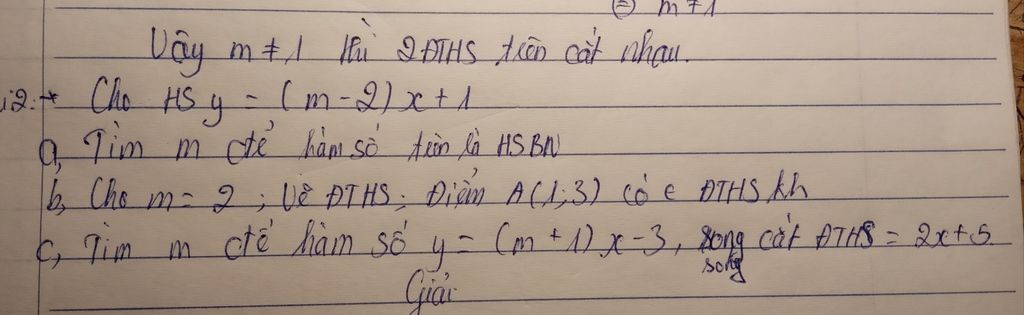 ⇔ m ≠ 1
Vậy m ≠ 1 thì 2 ĐTHS trên cắt nhau.
i2: * Cho HS y = (m - 2) x + 1
a, Tìm m để hàm số trên là HSBN
b, Cho m = 2 ; Vẽ ĐTHS ; Điểm A (1;3) có ∈ ĐTHS kh
c, Tìm m để hàm số y = (m + 1) x - 3, song cắt ĐTHS = 2x + 5
song
Giải